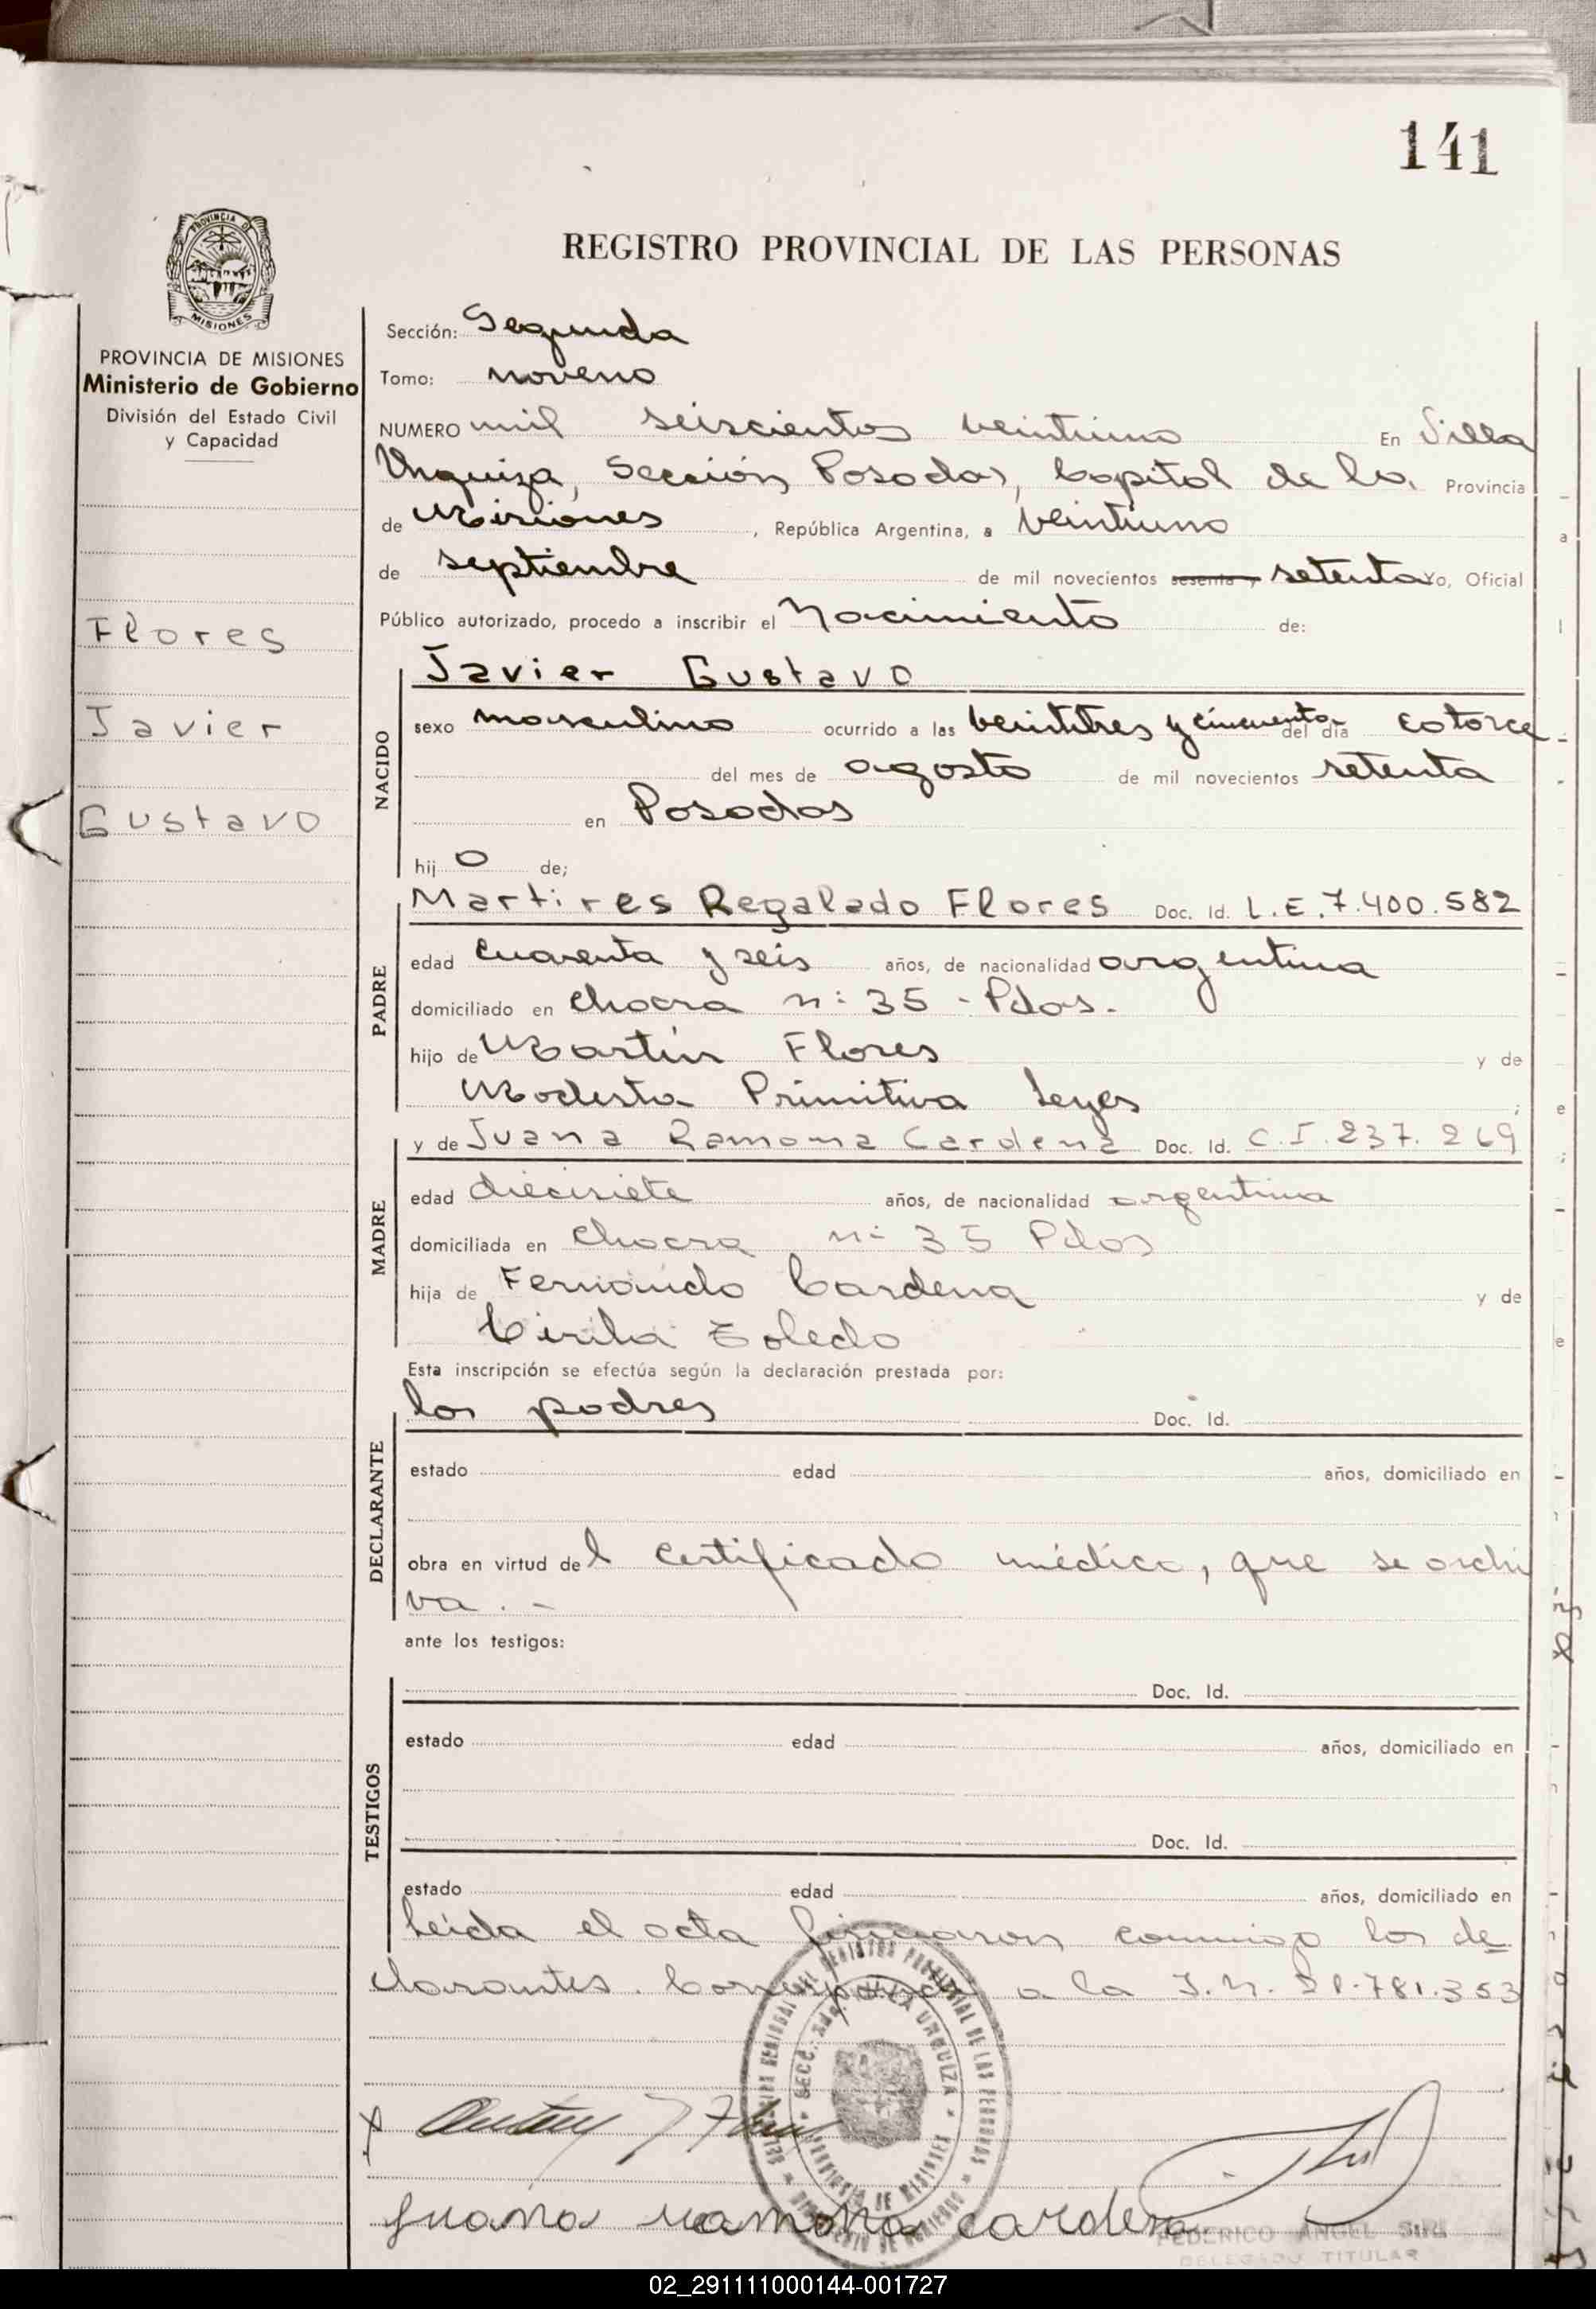 141
PROVINCIA DE
MISIONES
PROVINCIA DE MISIONES
Ministerio de Gobierno
División del Estado Civil
y Capacidad
Flores
Javier
Gustavo
REGISTRO PROVINCIAL DE LAS PERSONAS
Sección: Segunda
Tomo: noveno
NUMERO mil seiscientos veintiuno En Villa
Urquiza, Sección Posadas, Capital de la Provincia
de Misiones, República Argentina, a veintiuno
de septiembre de mil novecientos sesenta setenta Yo, Oficial
Público autorizado, procedo a inscribir el Nacimiento de:
NACIDO
Javier Gustavo
sexo masculino ocurrido a las veintitres y cincuenta del día catorce
del mes de agosto de mil novecientos setenta
en Posadas
hijo de;
PADRE
Martires Regalado Flores Doc. Id. L.E. 7.400.582
edad cuarenta y seis años, de nacionalidad argentina
domiciliado en chacra n: 35 - Pdas.
hijo de Martín Flores y de
Modesta Primitiva Leyes ;
MADRE
y de Juana Ramona Cardena Doc. Id. C.I. 237.269
edad diecisiete años, de nacionalidad argentina
domiciliada en chacra n: 35 Pdas
hija de Fernando Cardena y de
Cirila Toledo
Esta inscripción se efectúa según la declaración prestada por:
DECLARANTE
los padres Doc. Id.
estado edad años, domiciliado en
obra en virtud del certificado médico, que se archi
va. -
ante los testigos:
TESTIGOS
Doc. Id.
estado edad años, domiciliado en
Doc. Id.
estado edad años, domiciliado en
Leída el acta firmaron conmigo los de
clarantes. Corresponde a la I.N. 21.781.353
SECC. 2da. VILLA URQUIZA
PROVINCIA DE MISIONES
Juana ramona cardena
FEDERICO ANGEL
DELEGADO TITULAR
02_291111000144-001727